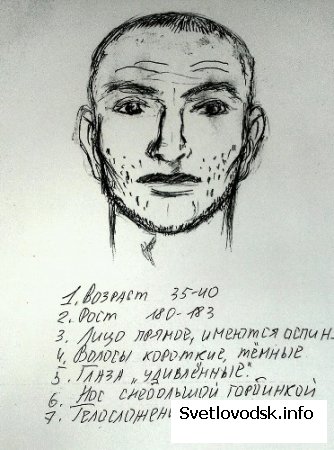 1. Возраст 35-40
2. Рост 180-183
3. Лицо прямое, имеются оспин
4. Волосы короткие, тёмные
5. Глаза „удивлённые".
6. Нос с небольшой горбинкой
7. Телосложен
Svetlovodsk.info